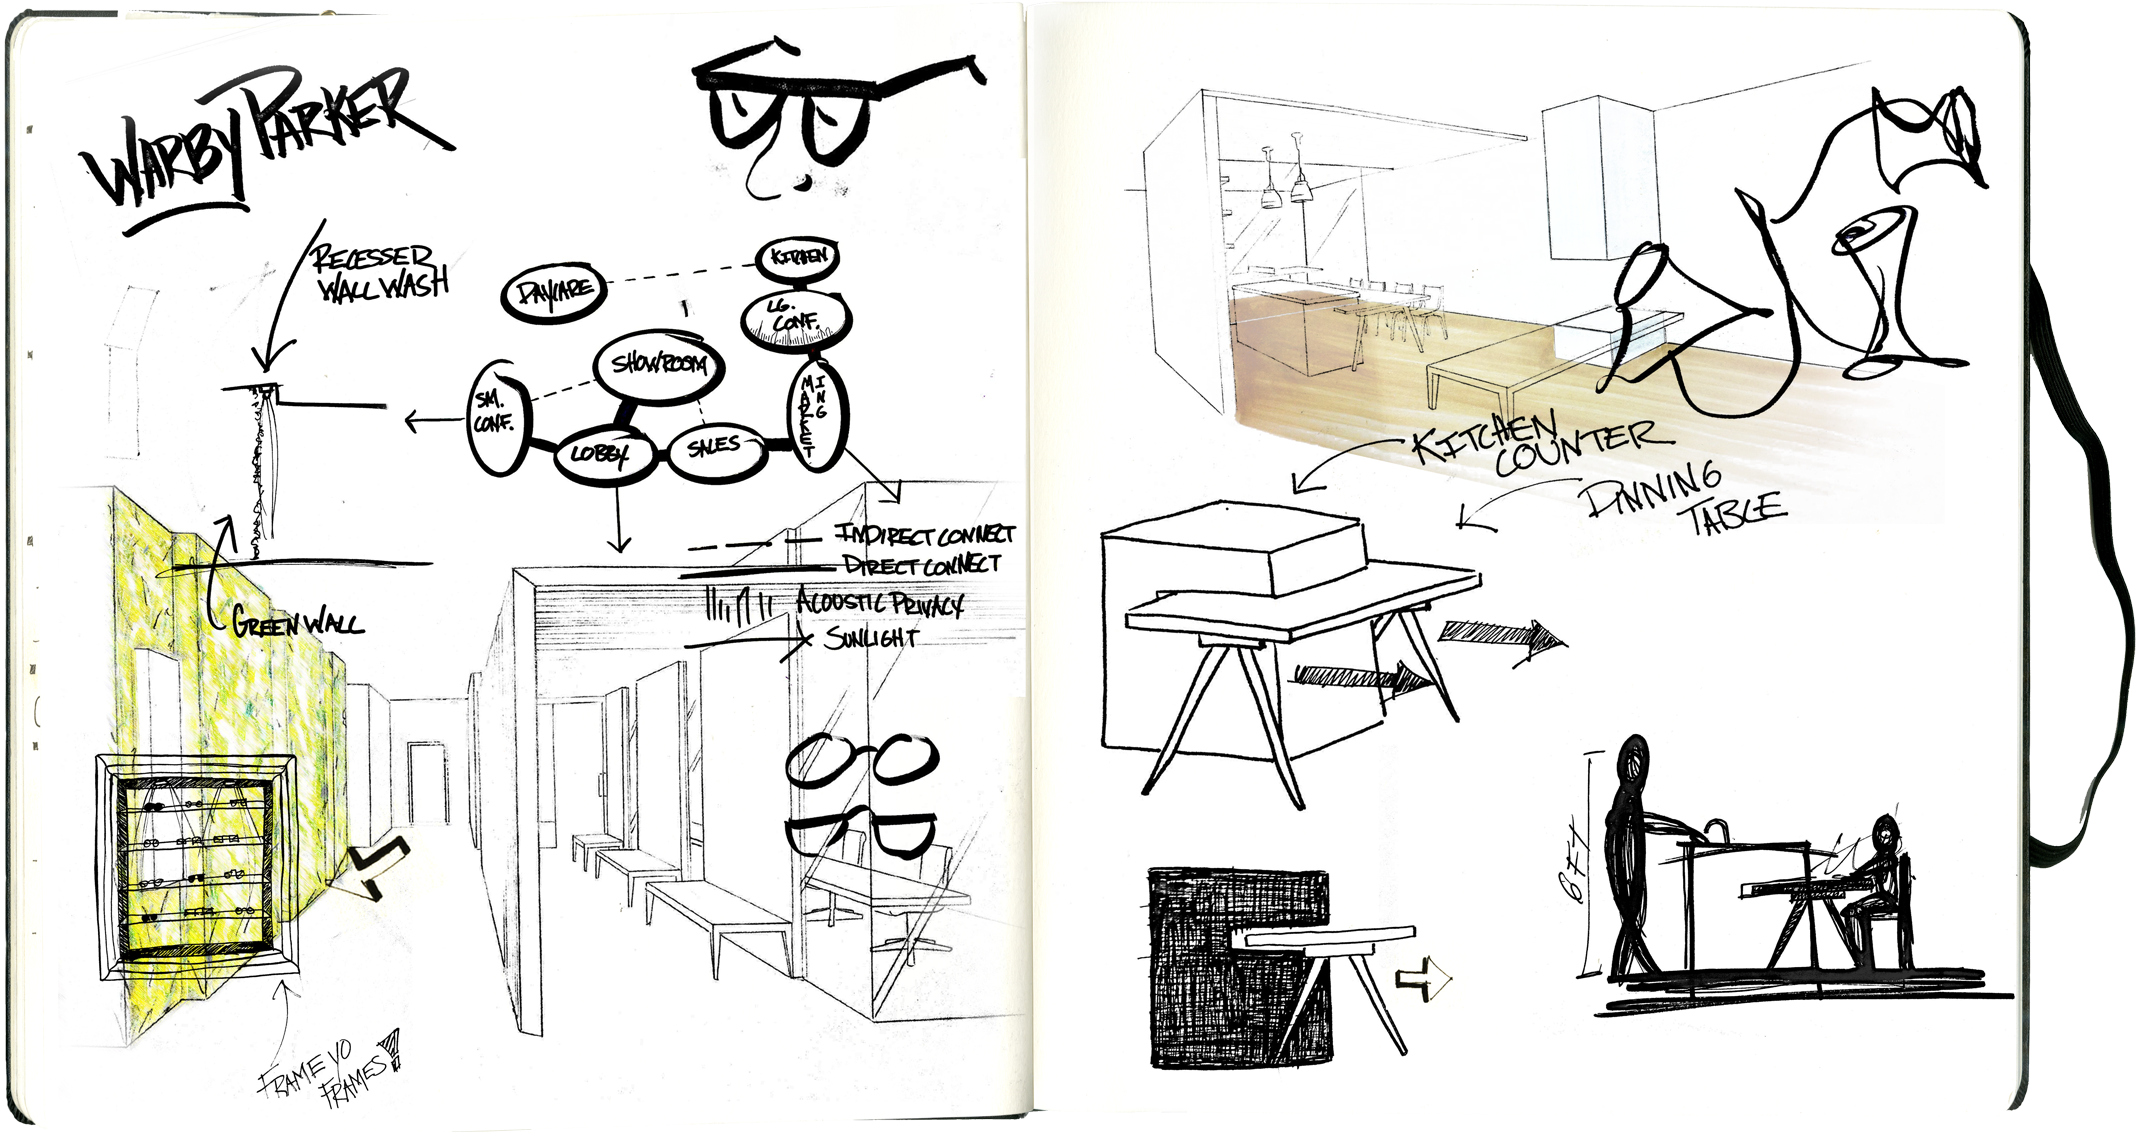 WARBY PARKER
RECESSED
WALL WASH
DAYCARE
KITCHEN
LG.
CONF.
SHOWROOM
SM.
CONF.
MARKET
ING
LOBBY
SALES
INDIRECT CONNECT
DIRECT CONNECT
ACOUSTIC PRIVACY
SUNLIGHT
GREEN WALL
FRAME YO
FRAMES!
KITCHEN
COUNTER
DINNING
TABLE
6FT